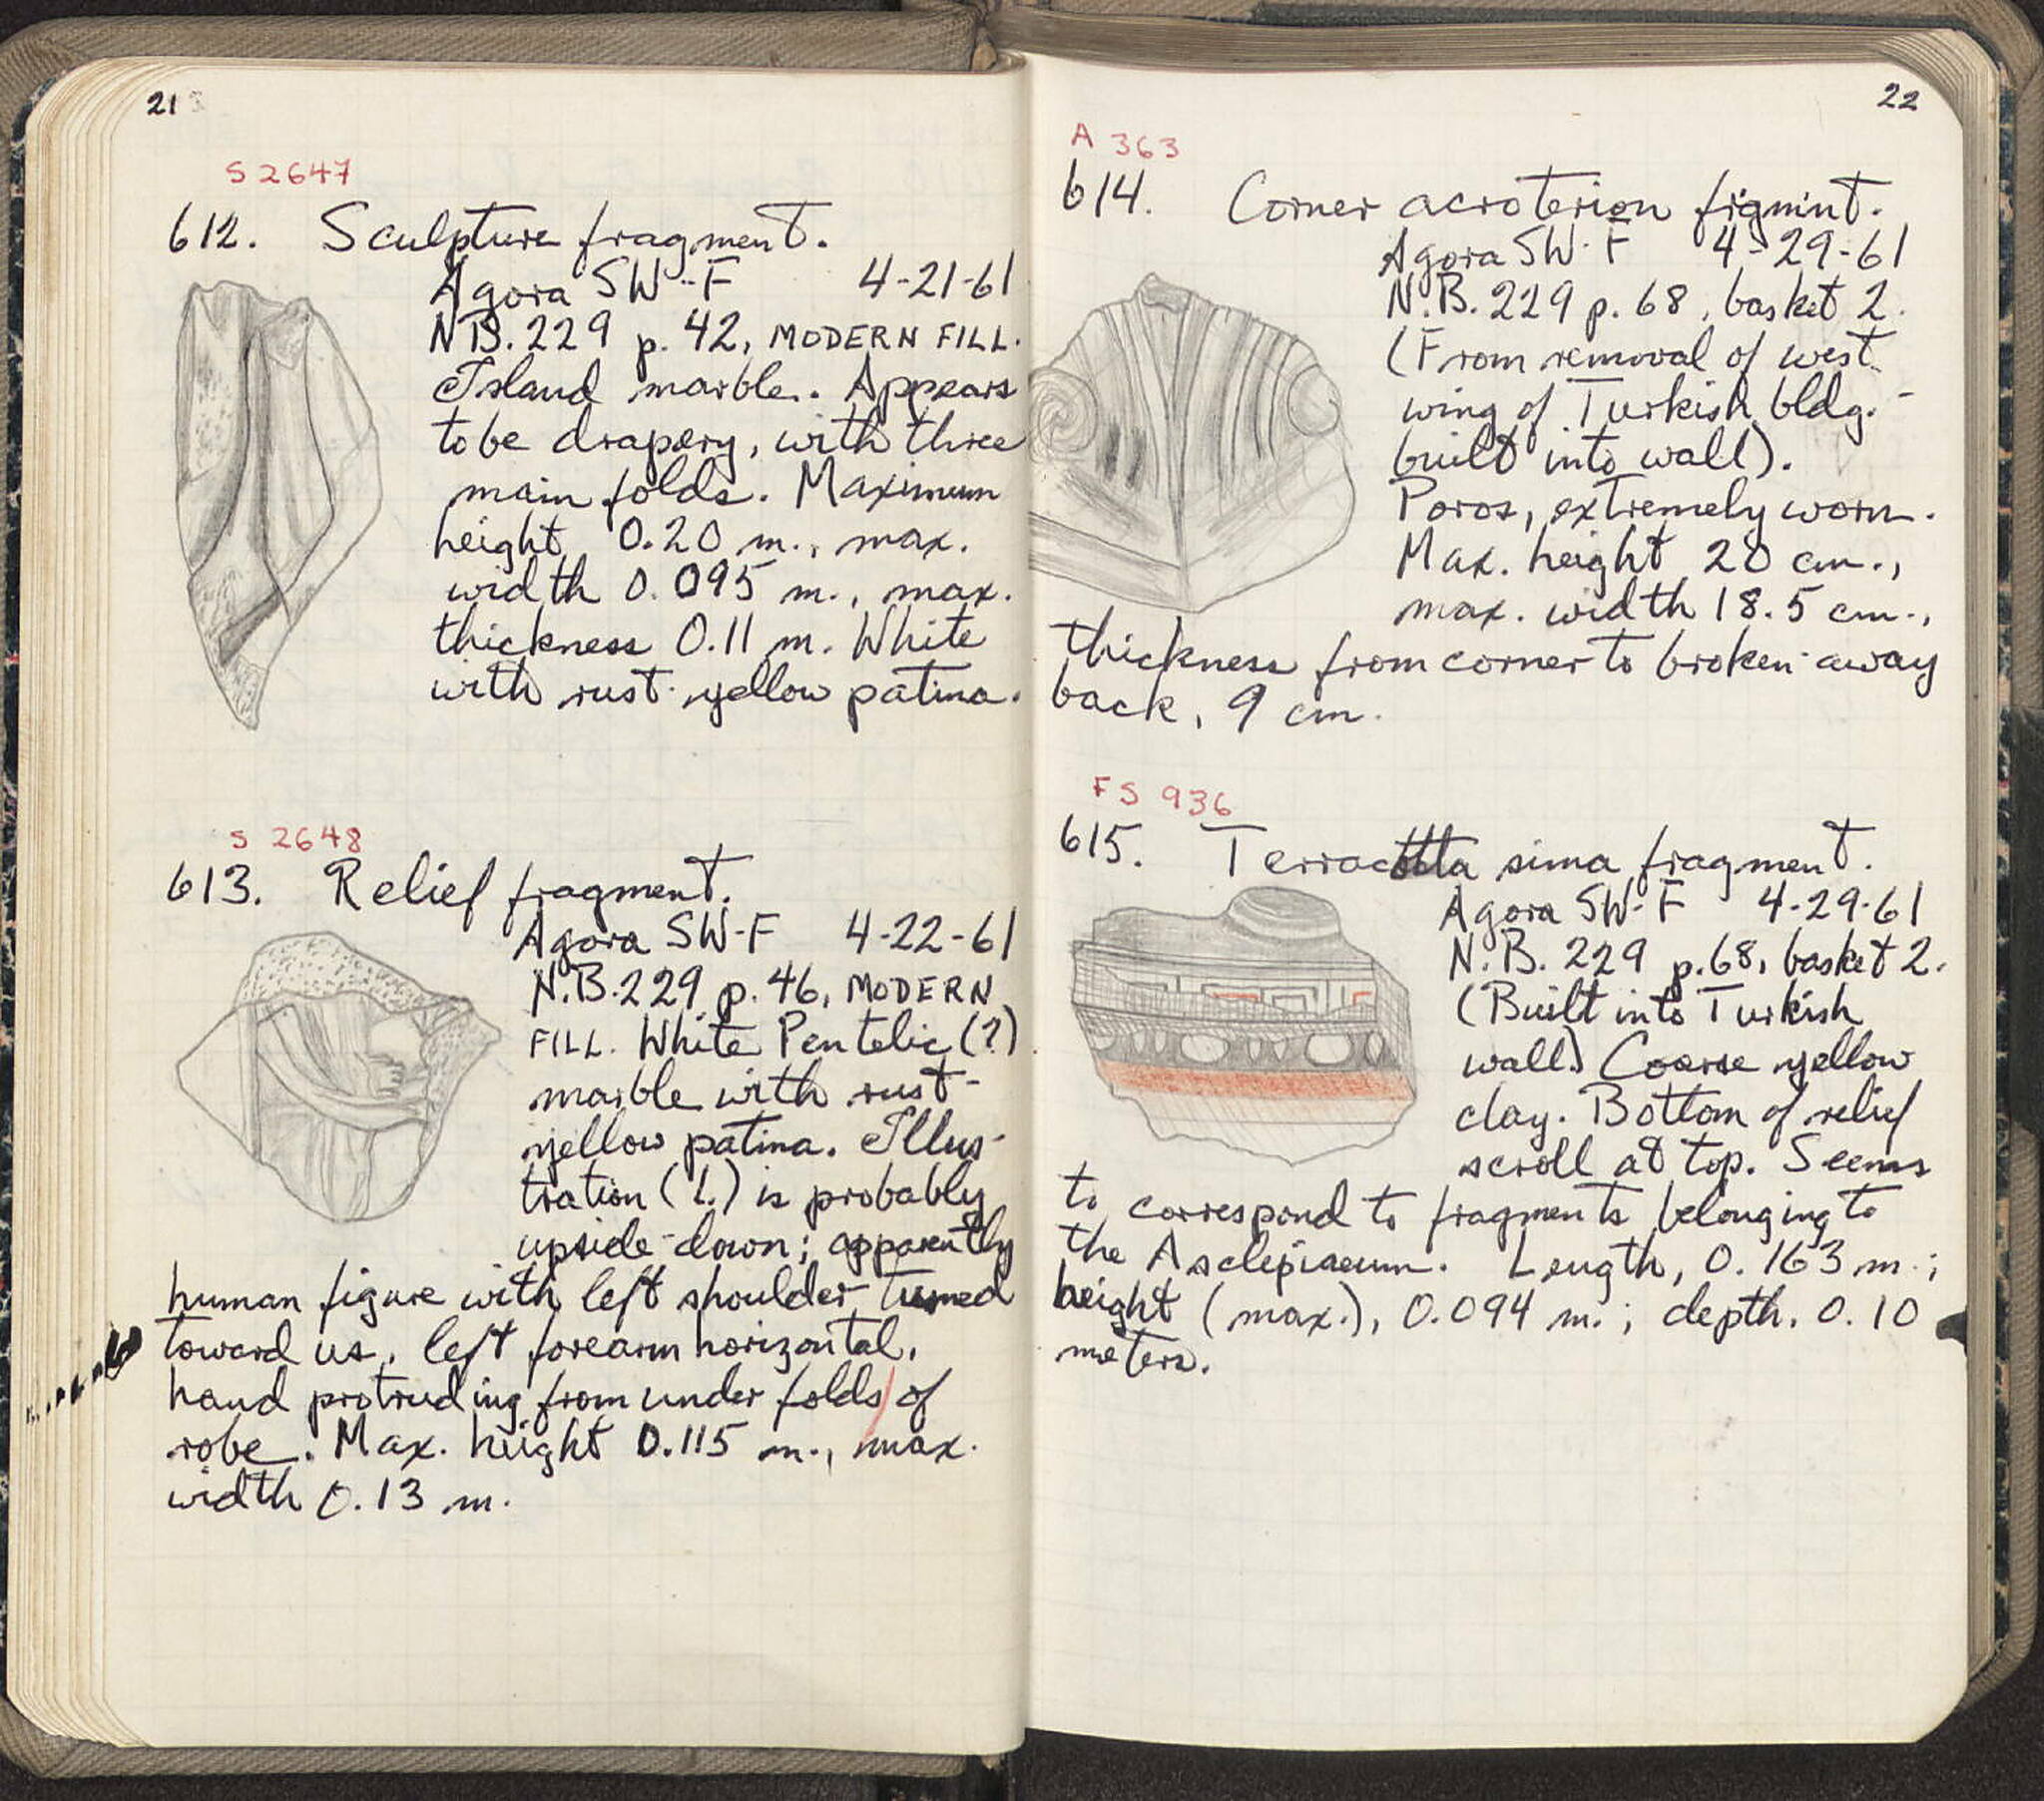 21
S 2647
612. Sculpture fragment.
Agora SW-F 4-21-61
N.B. 229 p. 42, MODERN FILL.
Island marble. Appears
to be drapery, with three
main folds. Maximum
height 0.20 m., max.
width 0.095 m., max.
thickness 0.11 m. White
with rust-yellow patina.
S 2648
613. Relief fragment.
Agora SW-F 4-22-61
N.B. 229 p. 46, MODERN
FILL. White Pentelic (?)
marble with rust-
yellow patina. Illus-
tration (1.) is probably
upside-down; apparently
human figure with left shoulder turned
toward us, left forearm horizontal,
hand protruding from under folds of
robe. Max. height 0.115 m., max.
width 0.13 m.
22
A 363
614. Corner acroterion frgmint.
Agora SW-F 4-29-61
N.B. 229 p. 68, basket 2.
(From removal of west
wing of Turkish bldg.-
built into wall).
Poros, extremely worn.
Max. height 20 cm.,
max. width 18.5 cm.,
thickness from corner to broken-away
back, 9 cm.
FS 936
615. Terracotta sima fragment.
Agora SW-F 4-29-61
N.B. 229 p. 68, basket 2.
(Built into Turkish
wall.) Coarse yellow
clay. Bottom of relief
scroll at top. Seems
to correspond to fragments belonging to
the Asclepiaeum. Length, 0.163 m.;
height (max.), 0.094 m.; depth, 0.10
meters.